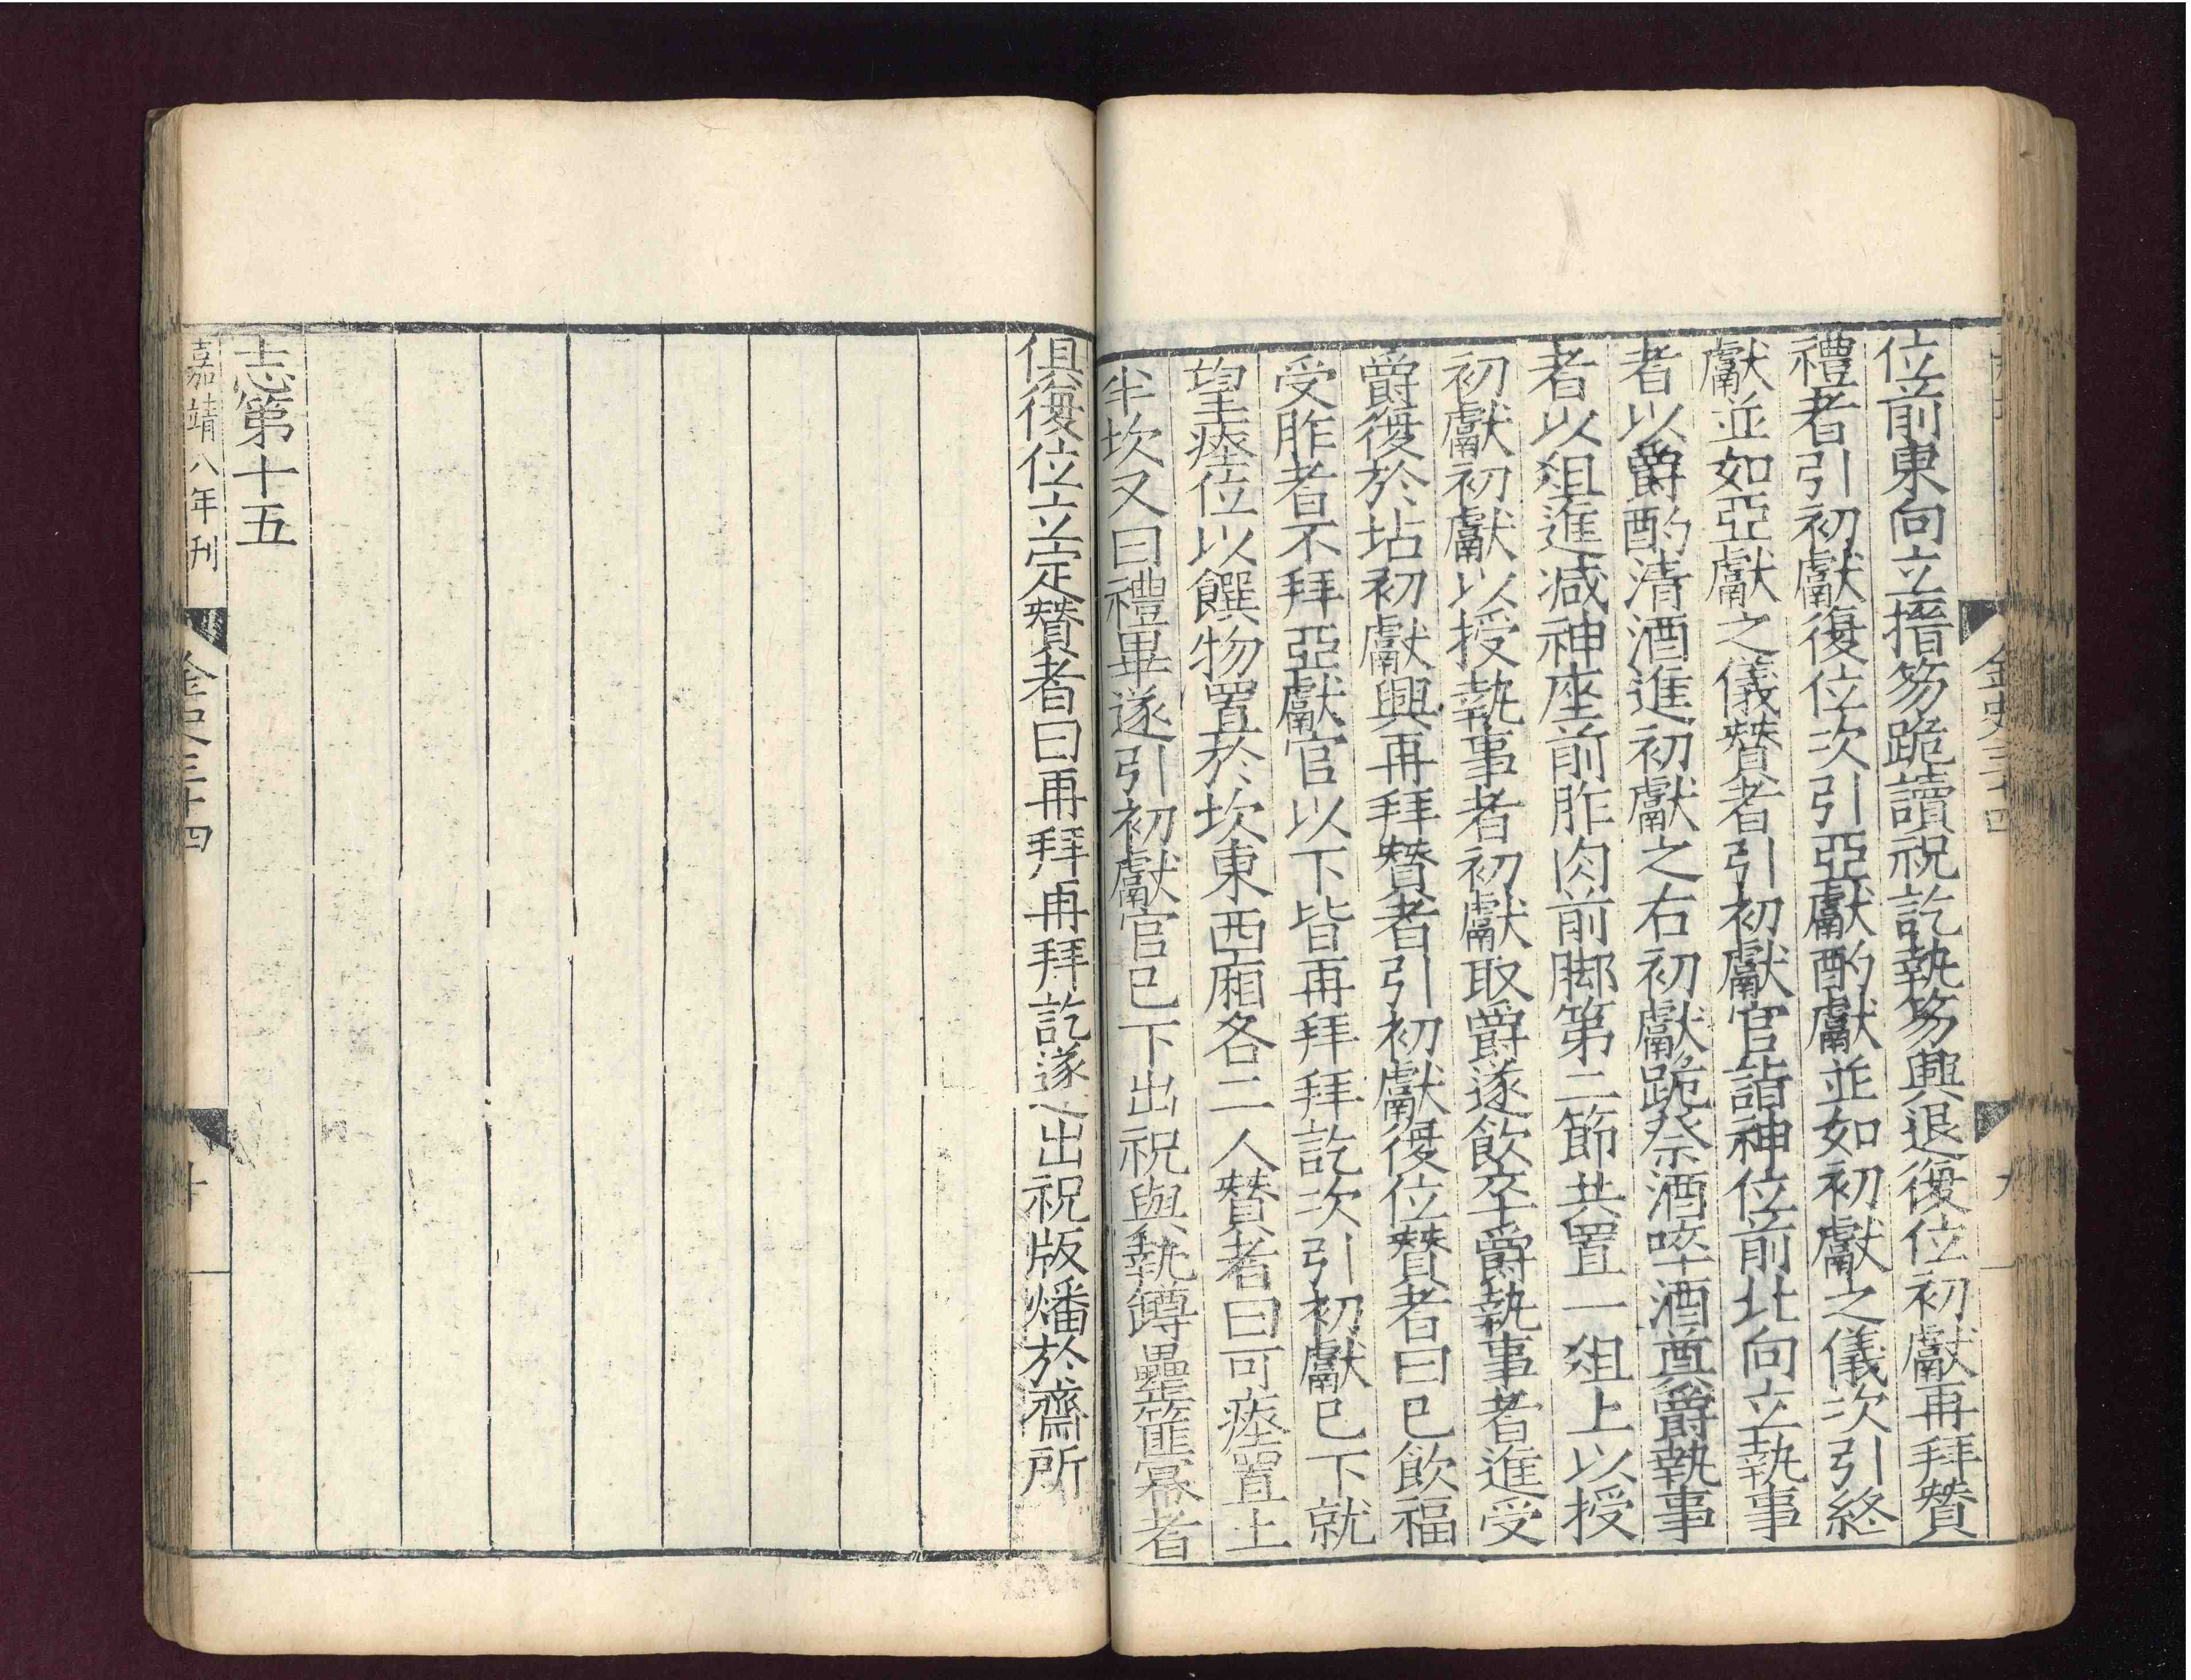 金史三十四
九
位前東向立搢笏跪讀祝訖執笏興退復位初獻再拜贊
禮者引初獻復位次引亞獻酌獻並如初獻之儀次引終
獻並如亞獻之儀贊者引初獻官詣神位前北向立執事
者以爵酌清酒進初獻之右初獻跪祭酒啐酒奠爵執事
者以俎進減神座前胙肉前脚第二節共置一俎上以授
初獻初獻以授執事者初獻取爵遂飲卒爵執事者進受
爵復於坫初獻興再拜贊者引初獻復位贊者曰已飲福
受胙者不拜亞獻官以下皆再拜拜訖次引初獻已下就
望瘞位以饌物置於坎東西廂各二人贊者曰可瘞置土
半坎又曰禮畢遂引初獻官已下出祝與執罇罍篚冪者
俱復位立定贊者曰再拜再拜訖遂出祝版燔於齋所
志第十五
嘉靖八年刊
金史三十四
十